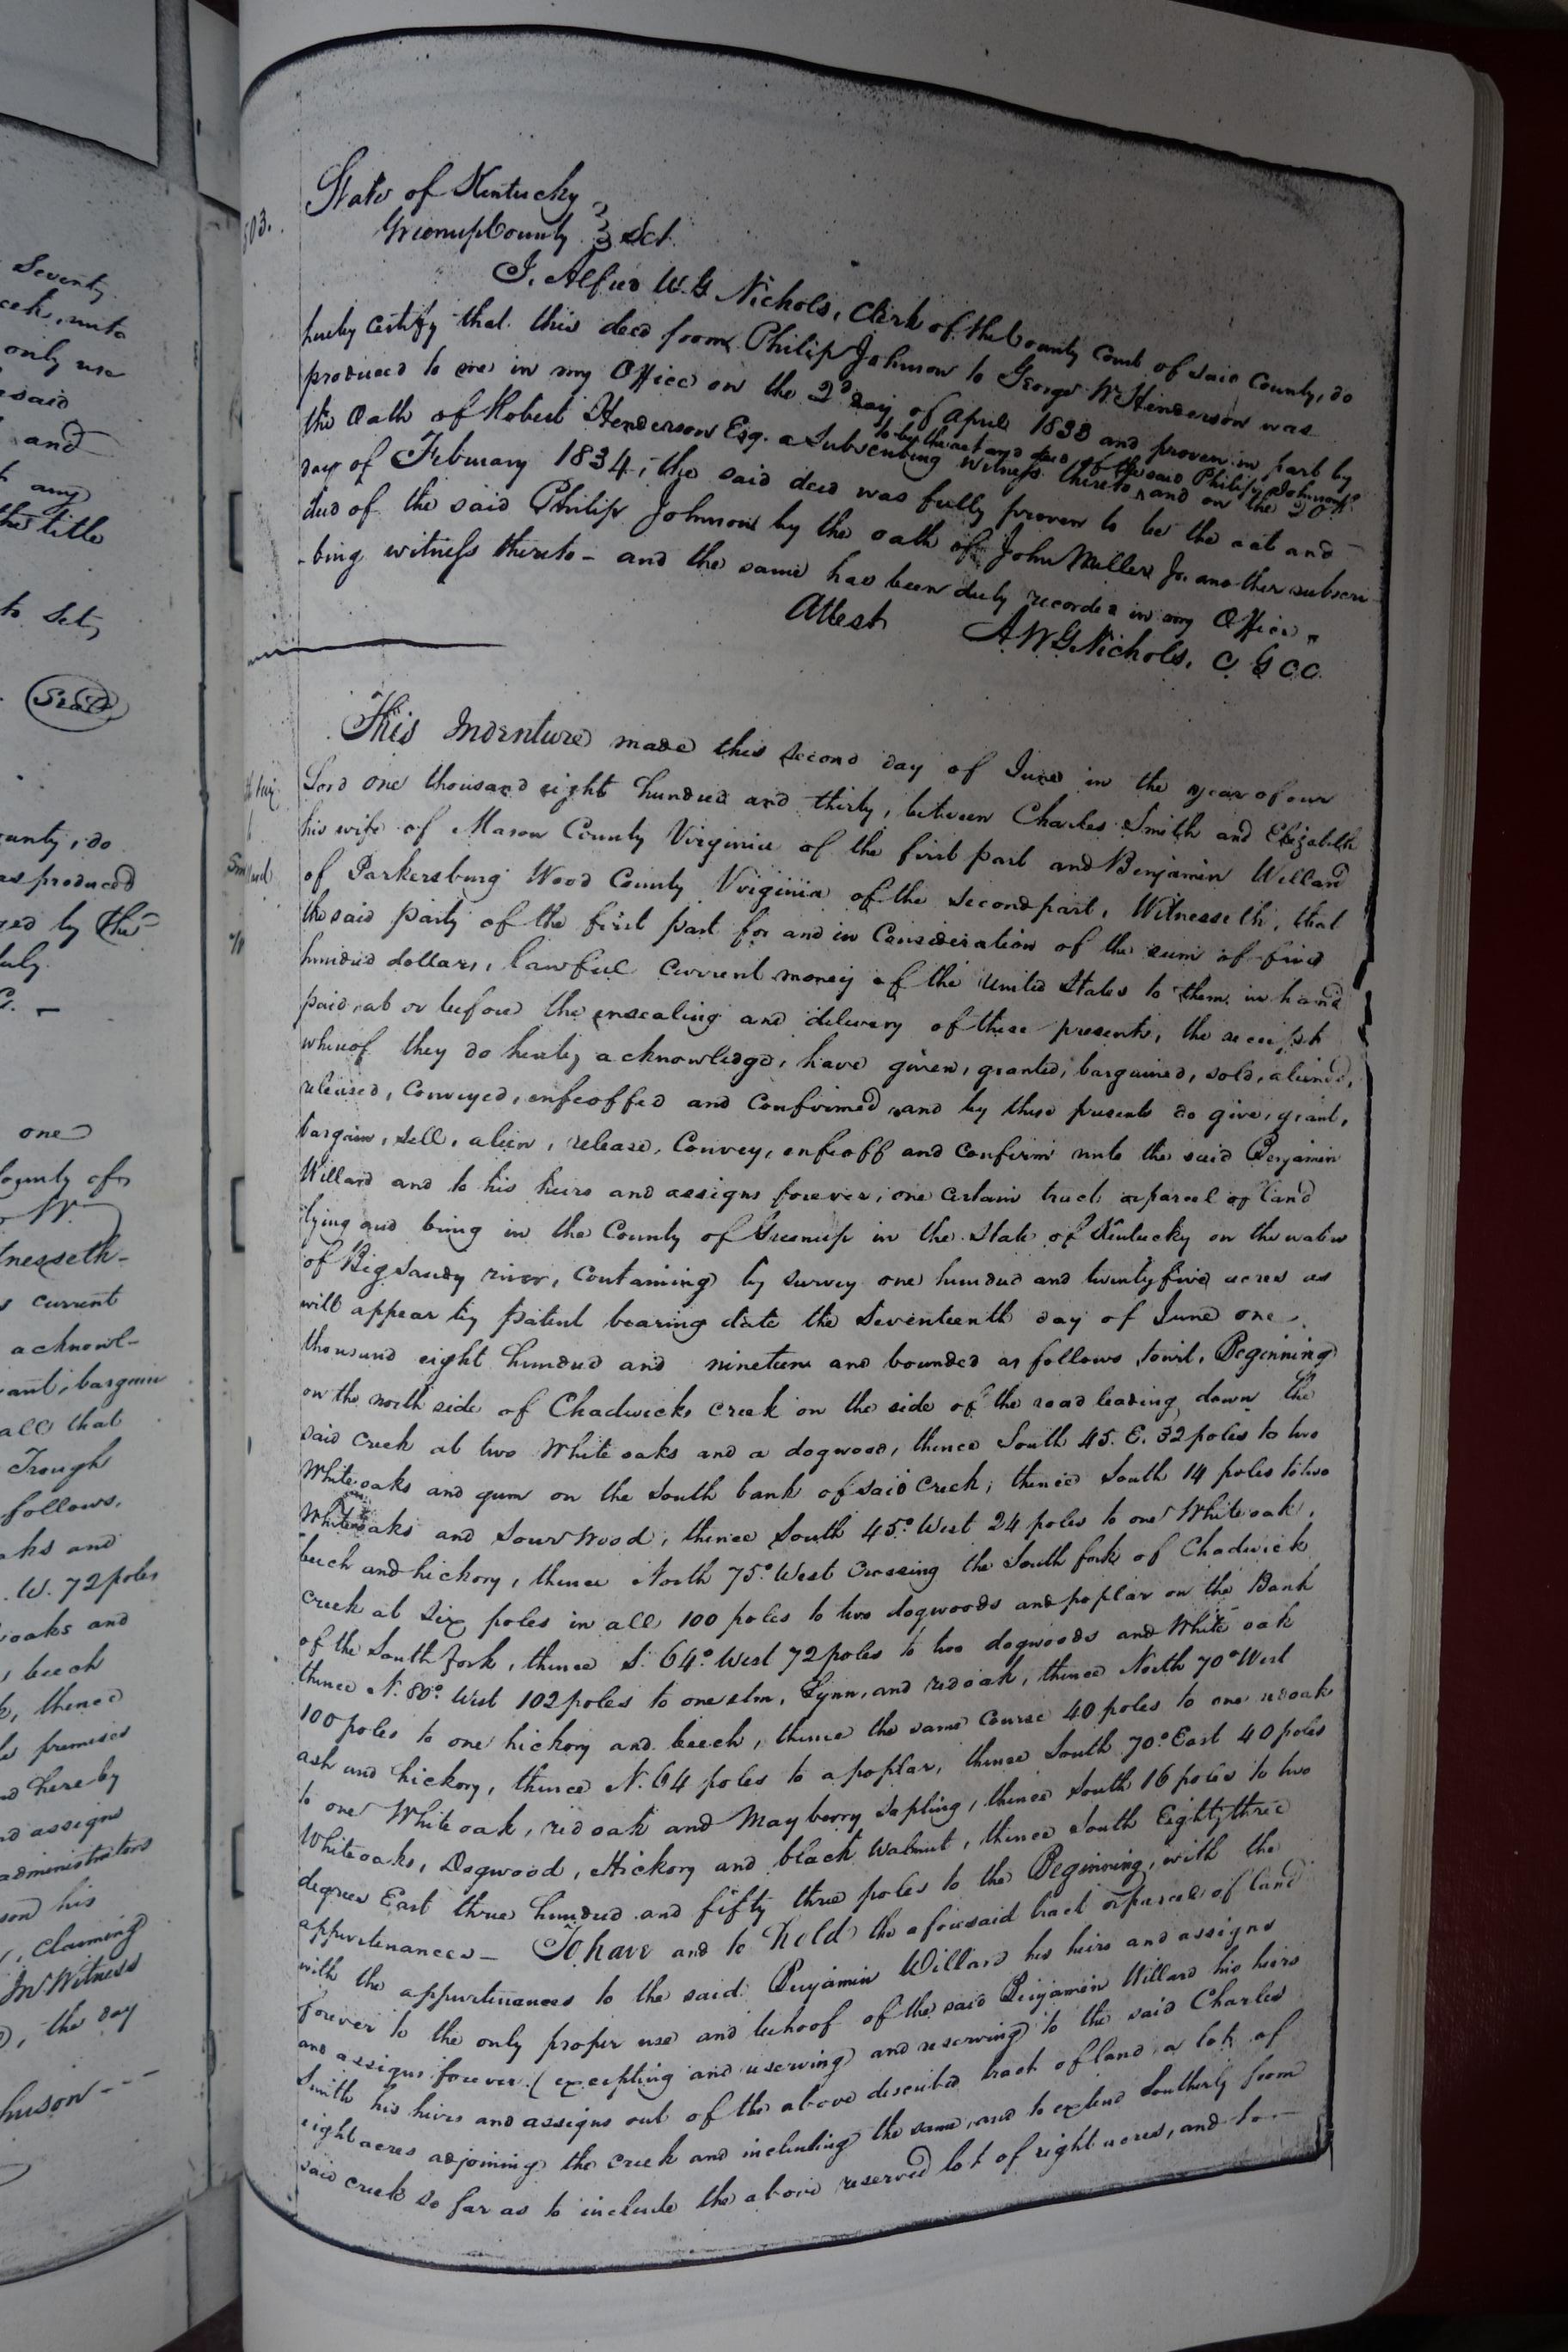 Seventy
only use
said
and
any
the title
Seal
anty, do
as produced
ged by the
uly.
one
County of
W.
tnesseth-
s current
acknowl-
ant, bargain
all that
Trough
follows,
aks and
W. 72 poles
oaks and
beech
k, thence
premises
nd hereby
nd assigns
administrators
son his
, claiming
In Witness
, the day
hnson - - -
503.
State of Kentucky
Greenup County } Sct.
I, Alfred W. G Nichols, Clerk of the County Court of said County, do
hereby certify that this deed from Philip Johnson to George W. Henderson was
produced to me in my Office on the 2d day of April 1833 and proven in part by
the Oath of Robert Henderson Esq. a Subscribing witness thereto to be the act and deed of the said Philip Johnson and on the 20th
day of February 1834, the said deed was fully proven to be the act and
deed of the said Philip Johnson by the oath of John Miller Jr. another subscri-
-bing witness thereto - and the same has been duly recorded in my Office.
Attest A W G Nichols, C G C C.
This Indenture made this second day of June in the year of our
Lord one thousand eight hundred and thirty, between Charles Smith and Elizabeth
his wife of Mason County Virginia of the first part and Benjamin Willard
of Parkersburg Wood County Virginia of the second part, Witnesseth, that
the said party of the first part for and in Consideration of the sum of five
hundred dollars, lawful current money of the United States to them in hand
paid, at or before the ensealing and delivery of these presents, the receipt
whereof they do hereby acknowledge, have given, granted, bargained, sold, aliened,
released, conveyed, enfeoffed and confirmed, and by these presents do give, grant,
bargain, sell, alien, release, Convey, enfeoff and Confirm unto the said Benjamin
Willard and to his heirs and assigns forever, one certain tract or parcel of land
lying and being in the County of Greenup in the State of Kentucky on the waters
of Big Sandy river, Containing by survey one hundred and twenty five acres as
will appear by patent bearing date the Seventeenth day of June one
thousand eight hundred and nineteen and bounded as follows, towit, Beginning
on the north side of Chadwicks creek on the side of the road leading down the
said creek at two White oaks and a dogwood, thence South 45. E. 32 poles to two
White oaks and gum on the South bank of said Creek, thence South 14 poles to two
White oaks and Sour Wood, thence South 45.° West 24 poles to one White oak,
beech and hickory, thence North 75.° West Crossing the South fork of Chadwick
creek at Six poles in all 100 poles to two dogwoods and poplar on the Bank
of the South fork, thence S. 64.° West 72 poles to two dogwoods and White oak
thence N. 80.° West 102 poles to one elm, Lynn, and red oak, thence North 70° West
100 poles to one hickory and beech, thence the same Course 40 poles to one red oak
ash and hickory, thence N. 64 poles to a poplar, thence South 70.° East 40 poles
to one White oak, red oak and May berry sapling, thence South 16 poles to two
White oaks, Dogwood, Hickory and black walnut, thence South Eighty three
degrees East three hundred and fifty three poles to the Beginning, with the
appurtenances - To have and to hold the aforesaid tract or parcel of land
with the appurtenances to the said Benjamin Willard his heirs and assigns
forever to the only proper use and behoof of the said Benjamin Willard his heirs
and assigns forever. (excepting and reserving) and reserving to the said Charles
Smith his heirs and assigns out of the above described tract of land a lot of
eight acres adjoining the creek and including the same, and to extend Southerly from
said creek so far as to include the above reserved lot of eight acres, and to -